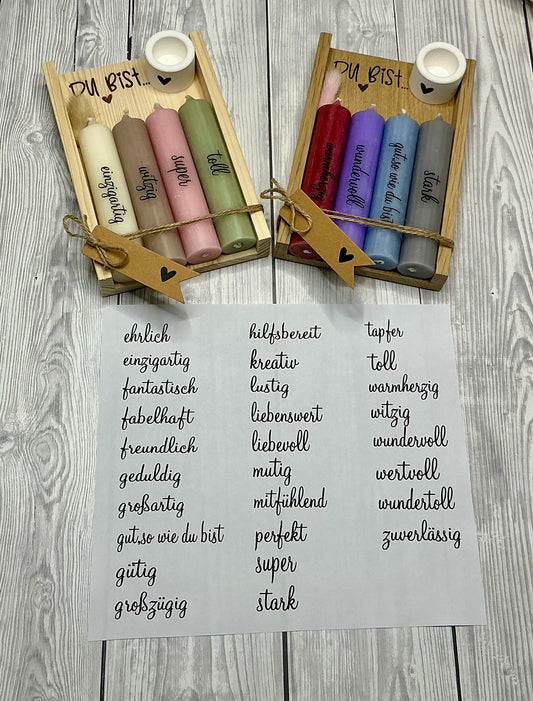 Du Bist...
einzigartig
witzig
super
toll
Du Bist...
warmherzig
wundervoll
gut,so wie du bist
stark
ehrlich
einzigartig
fantastisch
fabelhaft
freundlich
geduldig
großartig
gut,so wie du bist
gütig
großzügig
hilfsbereit
kreativ
lustig
liebenswert
liebevoll
mutig
mitfühlend
perfekt
super
stark
tapfer
toll
warmherzig
witzig
wundervoll
wertvoll
wundertoll
zuverlässig